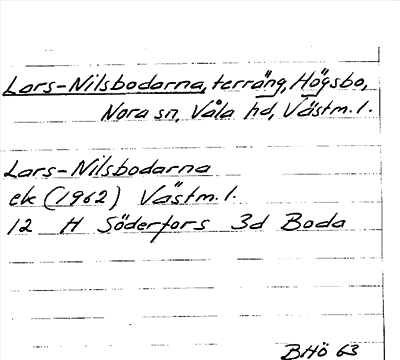 Lars-Nilsbodarna, terräng, Högsbo,
Nora sn, Våla hd, Västm. l.
Lars-Nilsbodarna
ek (1962) Västm. l.
12 H Söderfors 3d Boda
BHö 63